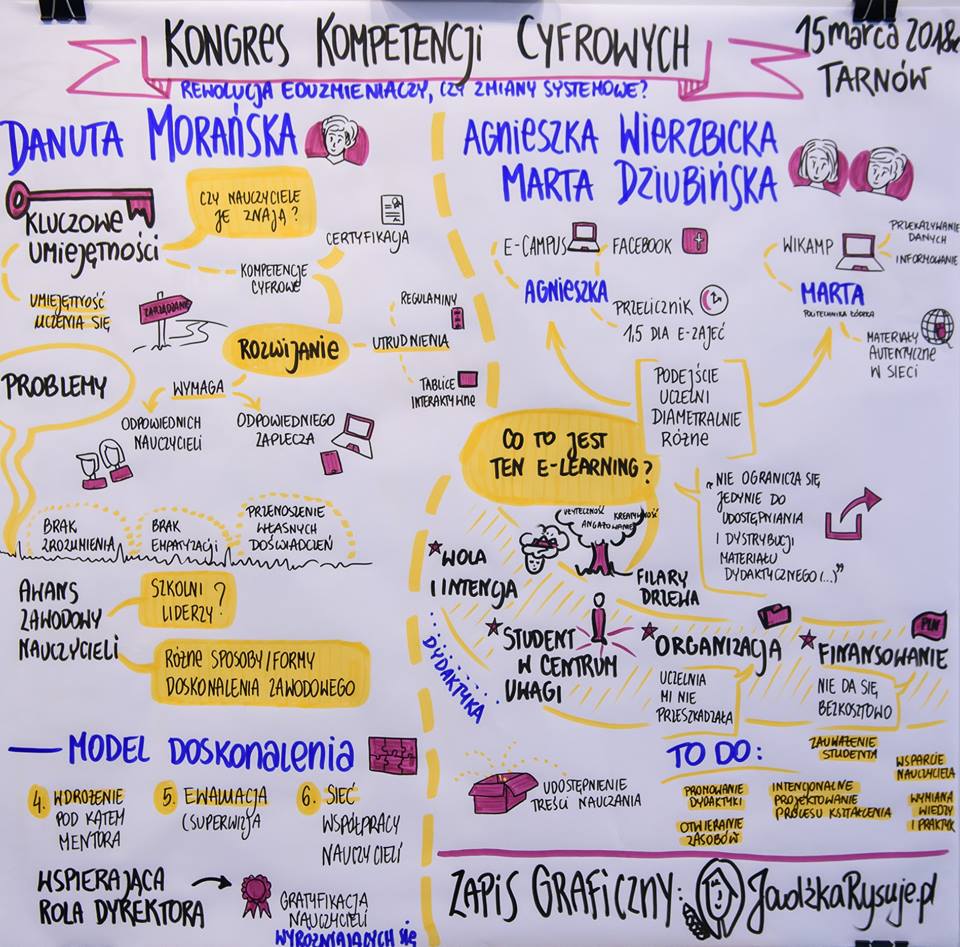 KONGRES KOMPETENCJI CYFROWYCH
15 marca 2018r.
TARNÓW
REWOLUCJA EDUZMIENIACZY, CZY ZMIANY SYSTEMOWE?
DANUTA MORAŃSKA
KLUCZOWE
UMIEJĘTNOŚCI
CZY NAUCZYCIELE
JE ZNAJĄ?
CERTYFIKACJA
KOMPETENCJE
CYFROWE
UMIEJĘTNOŚĆ
UCZENIA SIĘ
ZARZĄDZANIE
ROZWIJANIE
REGULAMINY
UTRUDNIENIA
TABLICE
INTERAKTYWNE
PROBLEMY
WYMAGA
ODPOWIEDNICH
NAUCZYCIELI
ODPOWIEDNIEGO
ZAPLECZA
BRAK
ZROZUMIENIA
BRAK
EMPATYZACJI
PRZENOSZENIE
WŁASNYCH
DOŚWIADCZEŃ
AWANS
ZAWODOWY
NAUCZYCIELI
SZKOLNI
LIDERZY?
RÓŻNE SPOSOBY/FORMY
DOSKONALENIA ZAWODOWEGO
MODEL DOSKONALENIA
4. WDROŻENIE
POD KĄTEM
MENTORA
5. EWALUACJA
(SUPERWIZJA
6. SIEĆ
WSPÓŁPRACY
NAUCZYCIELI
WSPIERAJĄCA
ROLA DYREKTORA
GRATYFIKACJA
NAUCZYCIELI
WYRÓŻNIAJĄCYCH SIĘ
AGNIESZKA WIERZBICKA
MARTA DZIUBIŃSKA
E-CAMPUS
FACEBOOK
AGNIESZKA
PRZELICZNIK
1,5 DLA E-ZAJĘĆ
WIKAMP
PRZEKAZYWANIE
DANYCH
INFORMOWANIE
MARTA
POLITECHNIKA ŁÓDZKA
MATERIAŁY
AUTENTYCZNE
W SIECI
PODEJŚCIE
UCZELNI
DIAMETRALNIE
RÓŻNE
CO TO JEST
TEN E-LEARNING?
„NIE OGRANICZA SIĘ
JEDYNIE DO
UDOSTĘPNIANIA
I DYSTRYBUCJI
MATERIAŁU
DYDAKTYCZNEGO (...)”
UŻYTECZNOŚĆ
KREATYWNOŚĆ
ANGAŻOWANIE
WOLA
I INTENCJA
FILARY
DRZEWA
DYDAKTYKA
STUDENT
W CENTRUM
UWAGI
ORGANIZACJA
UCZELNIA
MI NIE
PRZESZKADZAŁA
PLN
FINANSOWANIE
NIE DA SIĘ
BEZKOSZTOWO
UDOSTĘPNIENIE
TREŚCI NAUCZANIA
TO DO:
ZAUWAŻENIE
STUDENTA
WSPARCIE
NAUCZYCIELA
PROMOWANIE
DYDAKTYKI
INTENCJONALNE
PROJEKTOWANIE
PROCESU KSZTAŁCENIA
WYMIANA
WIEDZY
I PRAKTYK
OTWIERANIE
ZASOBÓW
ZAPIS GRAFICZNY: JawdźkaRysuje.pl